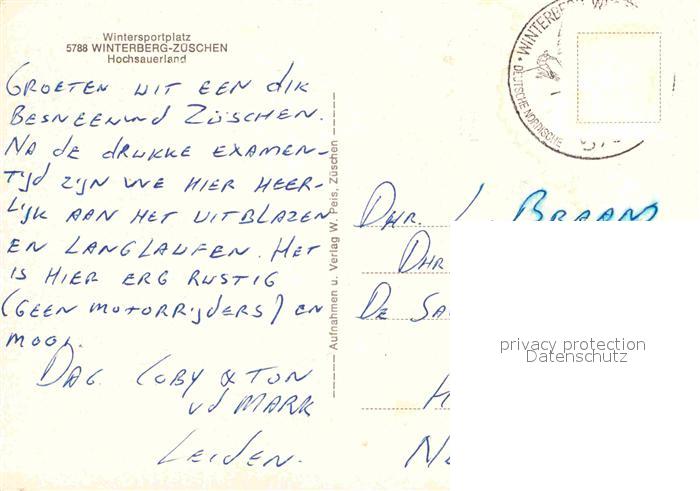 Wintersportplatz
5788 WINTERBERG-ZÜSCHEN
Hochsauerland
GROETEN UIT EEN DIK
BESNEEUWD ZÜSCHEN.
NA DE DRUKKE EXAMEN-
TIJD ZIJN WE HIER HEER-
LIJK AAN HET UITBLAZEN
EN LANGLAUFEN. HET
IS HIER ERG RUSTIG
(GEEN MOTORRIJDERS) EN
MOOI.
DAG. COBY & TON
vd MARK
LEIDEN.
Aufnahmen u. Verlag W. Peis, Züschen
WINTERBERG
DEUTSCHE NORDISCHE
DHR. L. BRAAM
DHR
DE SA
H
privacy protection
Datenschutz